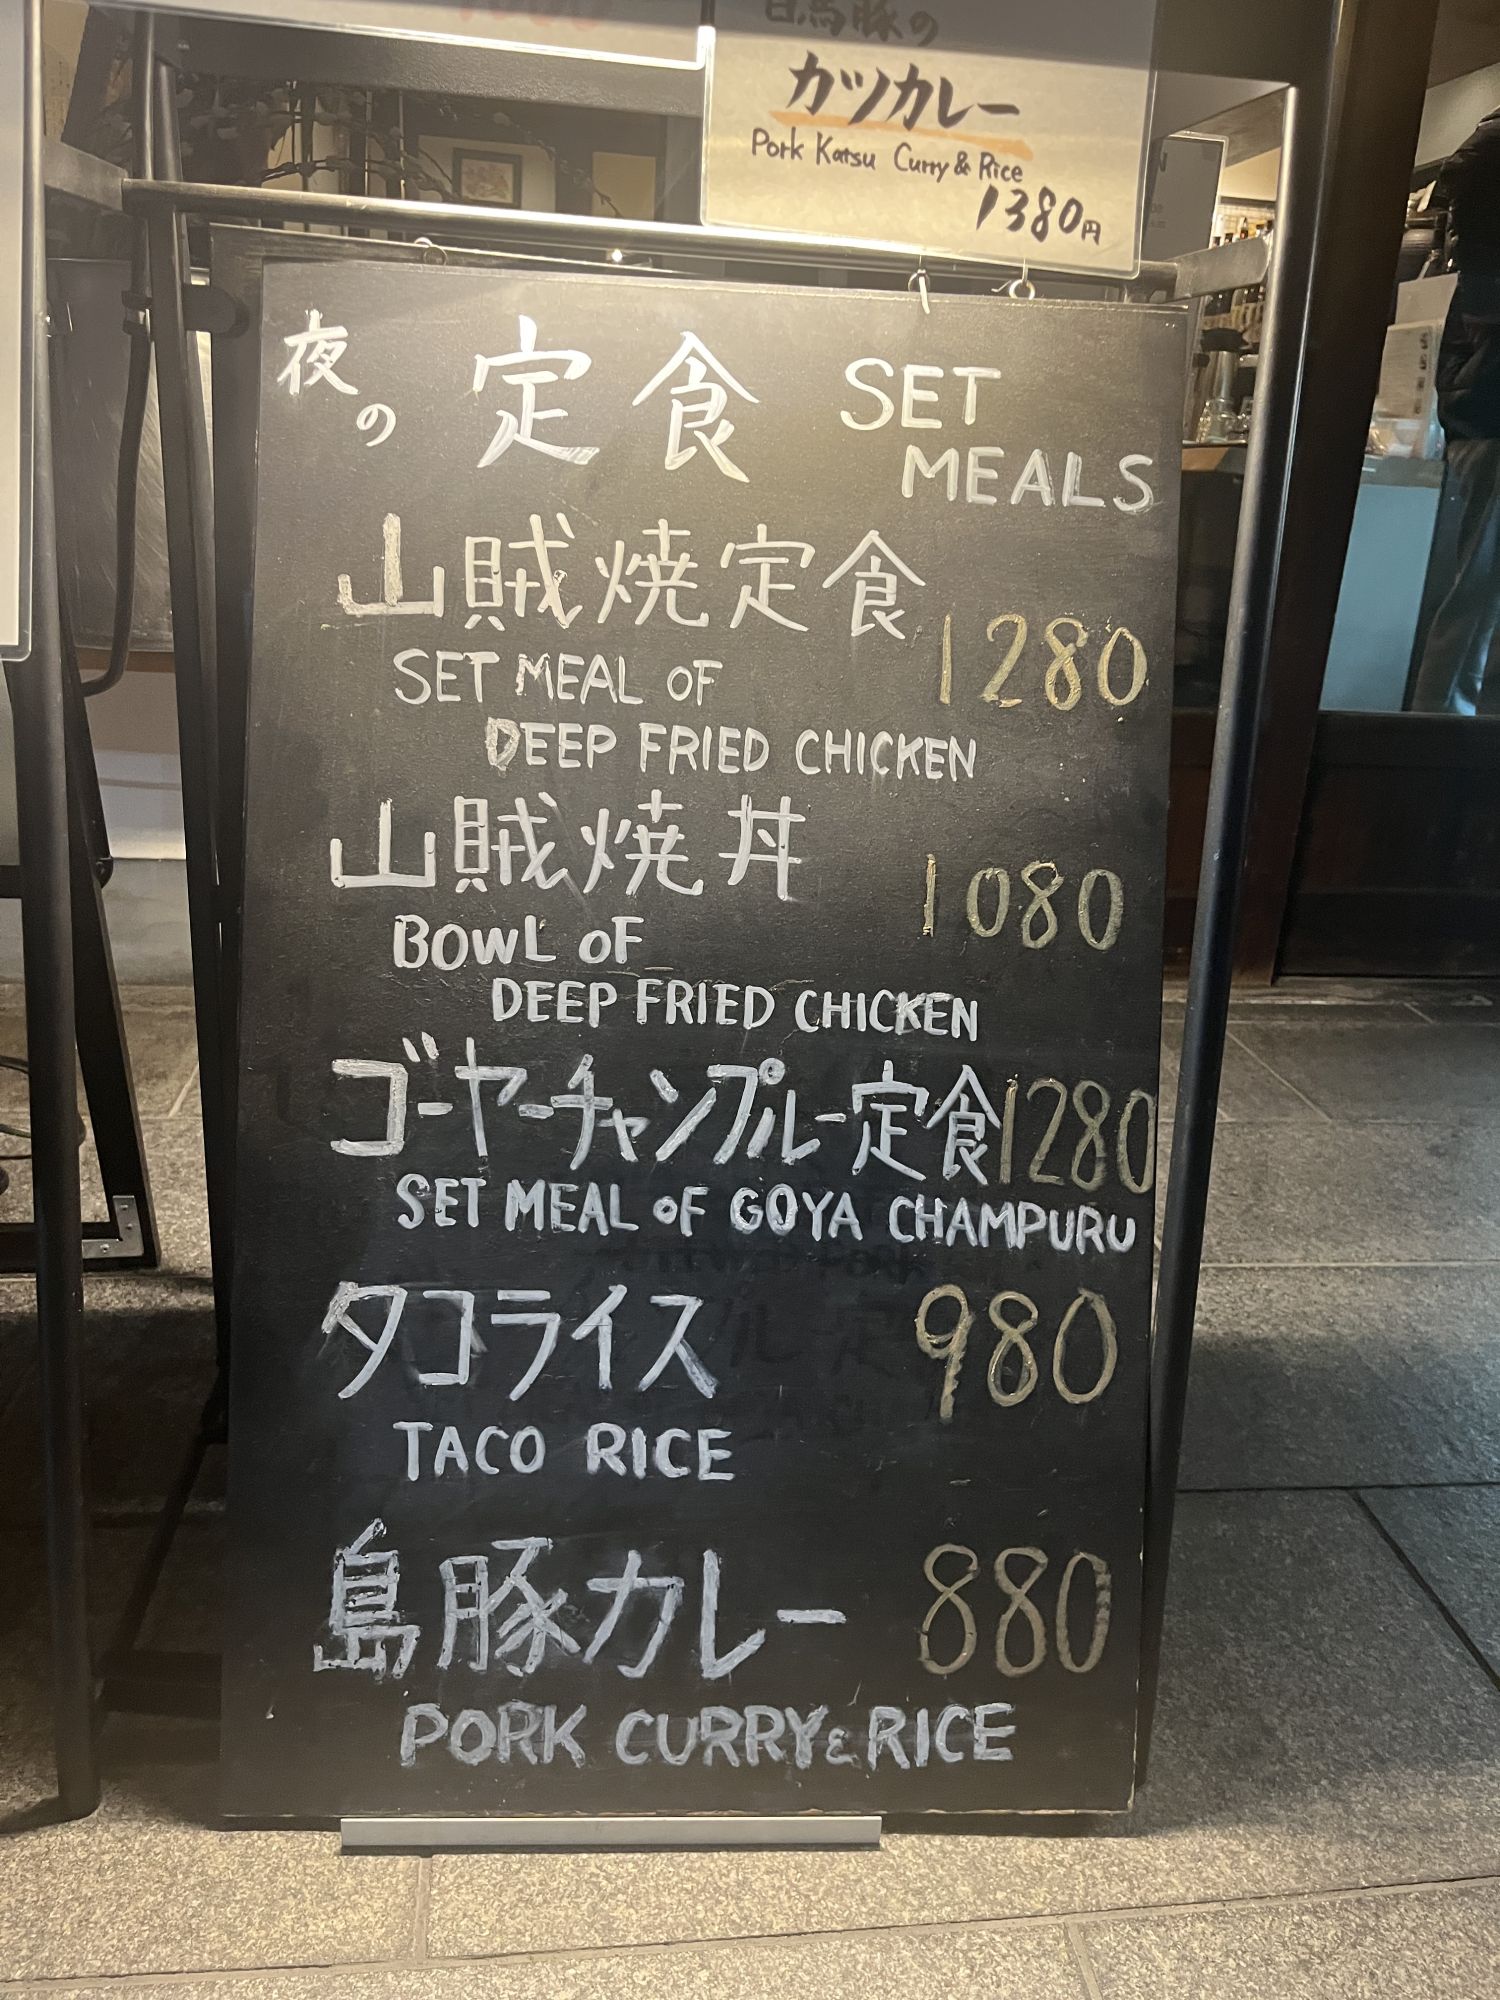 白馬豚の
カツカレー
Pork Katsu Curry & Rice
1380円
夜の 定食 SET
MEALS
山賊焼定食 1280
SET MEAL OF
DEEP FRIED CHICKEN
山賊焼丼 1080
BOWL OF
DEEP FRIED CHICKEN
ゴーヤーチャンプルー定食 1280
SET MEAL OF GOYA CHAMPURU
タコライス 980
TACO RICE
島豚カレー 880
PORK CURRY & RICE